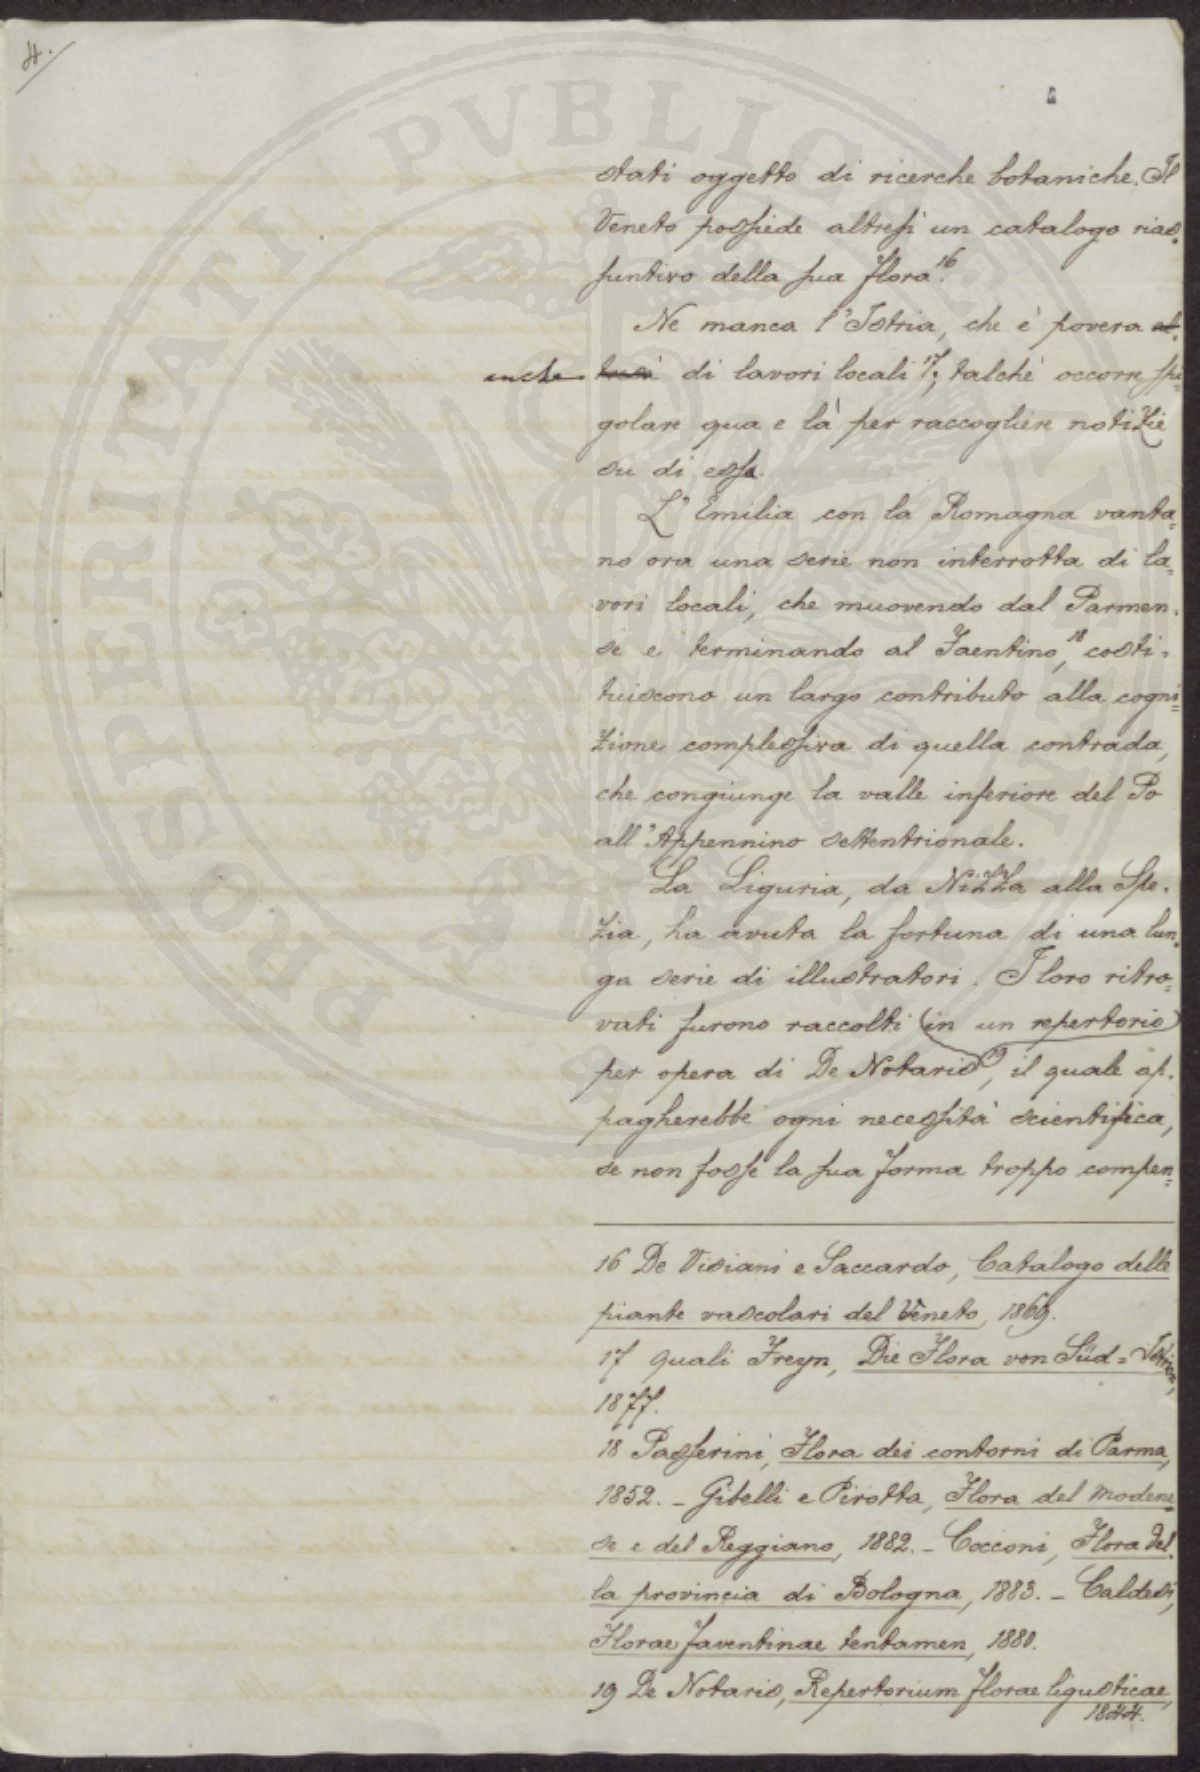 4.
stati oggetto di ricerche botaniche. Il
Veneto possiede altresì un catalogo rias-
suntivo della sua flora16.
Ne manca l'Istria, che è povera al-
anche tresì di lavori locali17; talchè occorre spi-
golare qua e là per raccogliere notizie
su di essa.
L'Emilia con la Romagna vanta-
no ora una serie non interrotta di la-
vori locali, che muovendo dal Parmen-
se e terminando al Faentino,18 costi-
tuiscono un largo contributo alla cogni-
zione complessiva di quella contrada,
che congiunge la valle inferiore del Po
all'Appennino settentrionale.
La Liguria, da Nizza alla Spe-
zia, ha avuta la fortuna di una lun-
ga serie di illustratori. I loro ritro-
vati furono raccolti (in un repertorio)
per opera di De Notaris19, il quale ap-
pagherebbe ogni necessità scientifica,
se non fosse la sua forma troppo compen-
16 De Visiani e Saccardo, Catalogo delle
piante vascolari del Veneto, 1869.
17 quali Freyn, Die Flora von Süd-Istrien,
1877.
18 Passerini, Flora dei contorni di Parma,
1852. - Gibelli e Pirotta, Flora del Modene-
se e del Reggiano, 1882. - Cocconi, Flora del-
la provincia di Bologna, 1883. - Caldesi,
Florae faventinae tentamen, 1880.
19 De Notaris, Repertorium florae ligusticae,
1844.
PROSPERITATI PVBLICAE